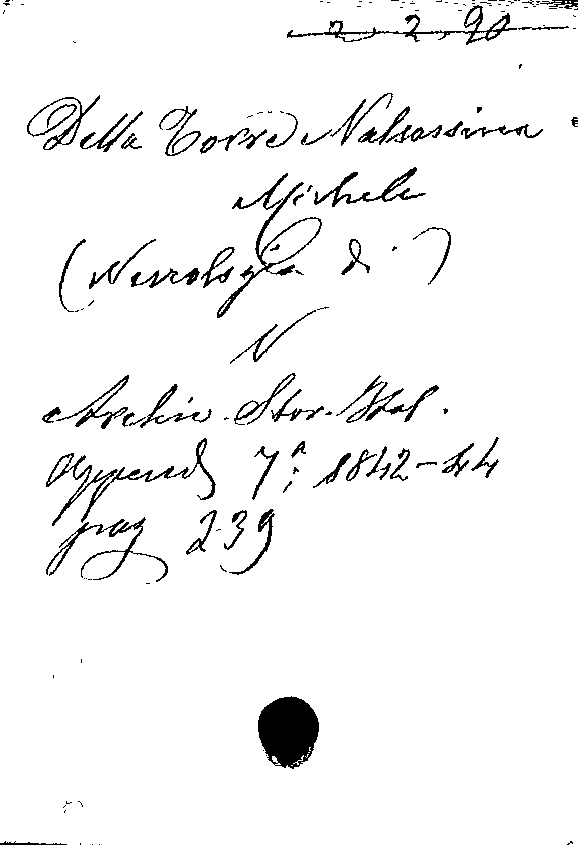 2. 2. 90
Della Torre Valsassina
Michele
(Necrologia di)
N
Archiv. Stor. Ital.
Append 7ª: 1842-44
pag 239